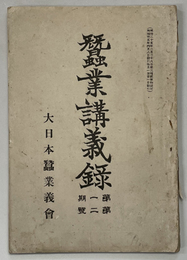 蠶業講義錄
第一期
第二號
大日本蠶業義會